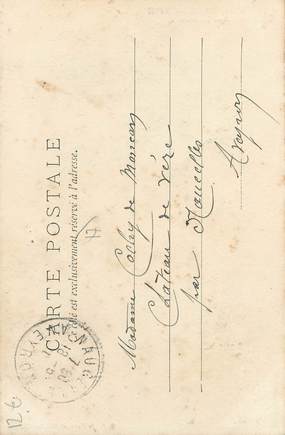 CARTE POSTALE
Ce côté est exclusivement réservé à l'adresse.
Madame Cochy de Moncan
Château de Vèze
par Naucelle
Aveyron
17
12.6